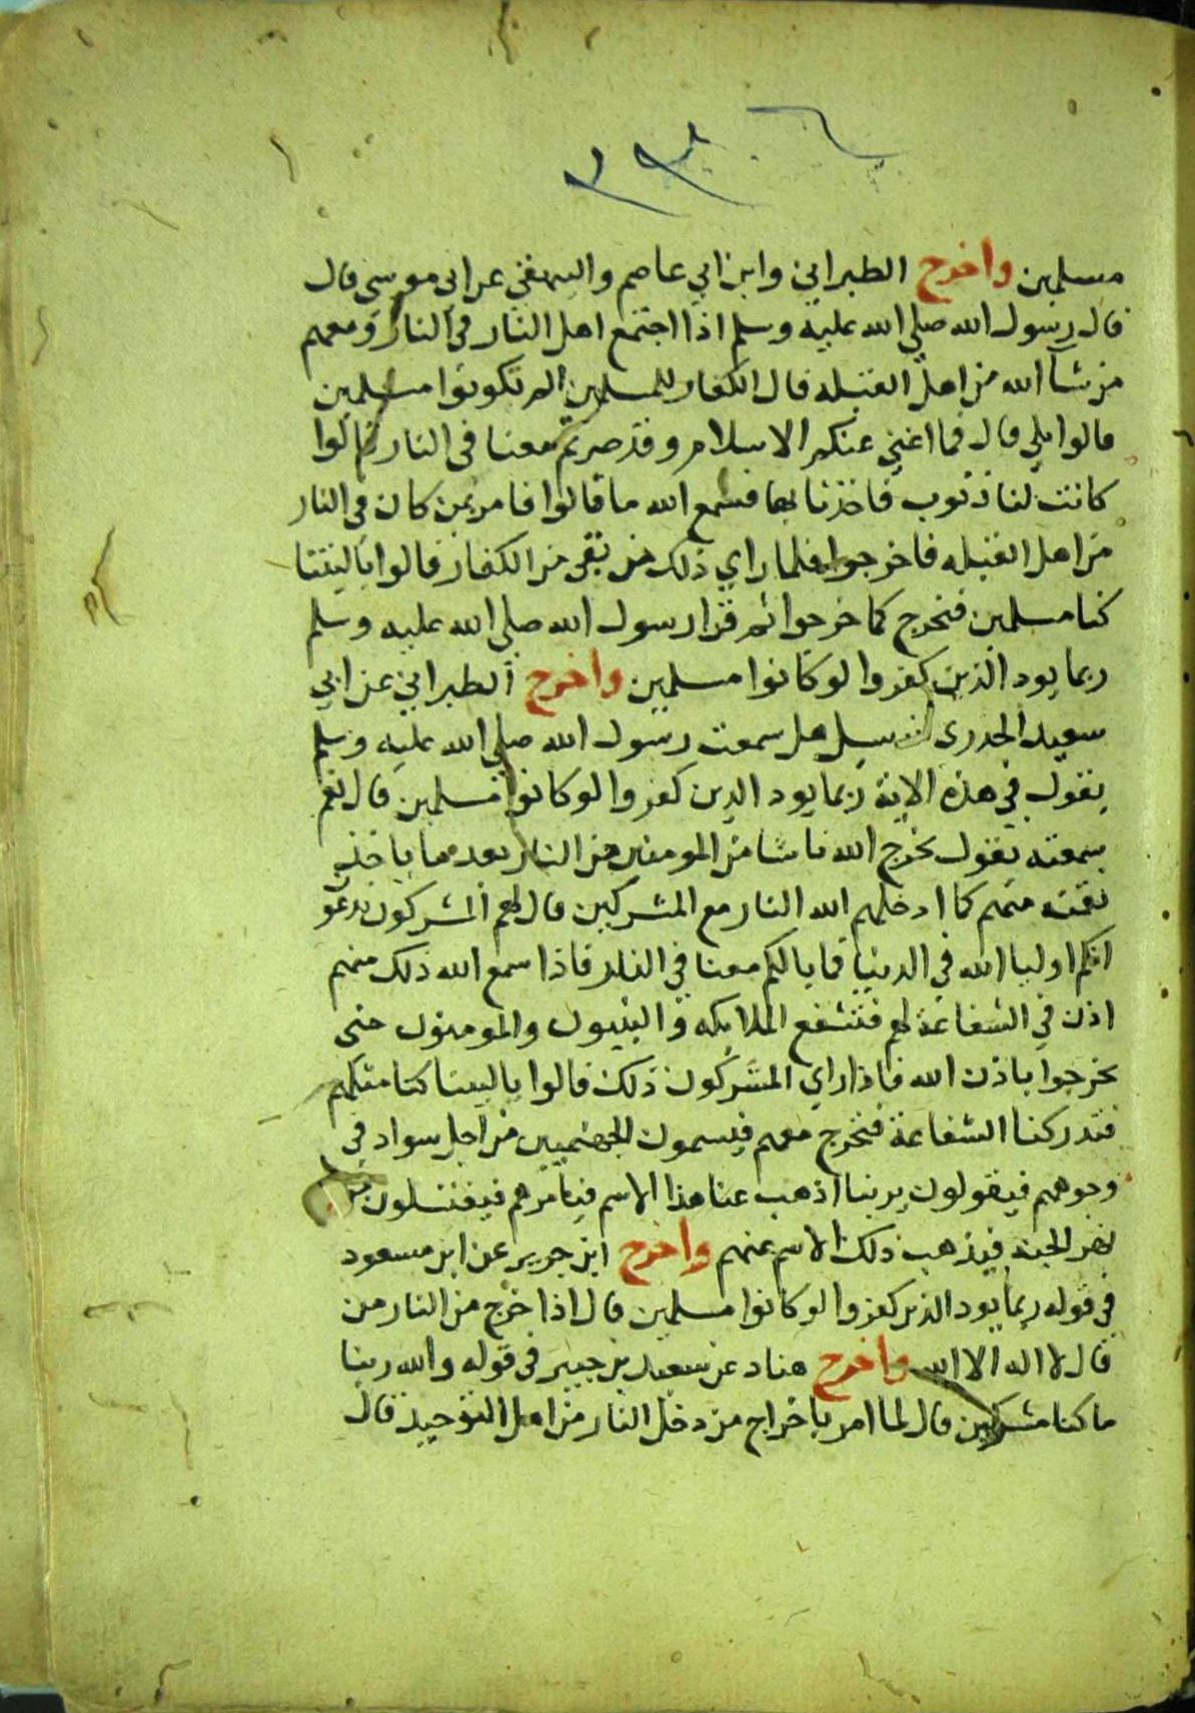 مسلمين واخرج الطبراني وابن ابي عاصم والبيهقي عن ابي موسى قال
قال رسول الله صلى الله عليه وسلم اذا اجتمع اهل النار في النار ومعهم
من شاالله من اهل القبله قال الكفار للمسلمين الم تكونوا مسلمين
قالوا بلي قال فما اغني عنكم الاسلام وقد صرتم معنا في النار قالوا
كانت لنا ذنوب فاخذنا بها فسمع الله ما قالوا فامر بمن كان في النار
من اهل القبله فاخرجوا فلما راي ذلك من بقي من الكفار قالوا ياليتنا
كنا مسلمين فنخرج كما خرجوا ثم قرا رسول الله صلى الله عليه وسلم
ربما يود الذين كفروا لو كانوا مسلمين واخرج الطبراني عن ابي
سعيد الخدري انه سيل هل سمعت رسول الله صلى الله عليه وسلم
يقول في هذه الاية ربما يود الذين كفروا لو كانوا مسلمين قال نعم
سمعته يقول يخرج الله ناسا من المومنين من النار بعد ما ياخذ
نقمته منهم كما ادخلهم الله النار مع المشركين قال لهم المشركون تدعو
انكم اوليا الله في الدنيا فما بالكم معنا في النار فاذا سمع الله ذلك منهم
اذن في الشفاعة لهم فتشفع الملايكه والنبيون والمومنون حتى
يخرجوا باذن الله فاذا راي المشركون ذلك قالوا ياليتنا كنا مثلهم
فتدركنا الشفاعة فنخرج معهم فيسمون الجهنميين من اجل سواد في
وجوههم فيقولون ربنا اذهب عنا هذا الاسم فيامرهم فيغتسلون من
نهر الجنه فيذهب ذلك الاسم عنهم واخرج ابن جرير عن ابن مسعود
في قوله ربما يود الذين كفروا لو كانوا مسلمين قال اذا خرج من النار من
قال لا اله الا الله واخرج هناد عن سعيد بن جبير في قوله والله ربنا
ما كنا مشركين قال لما امر باخراج من دخل النار من اهل التوحيد قال